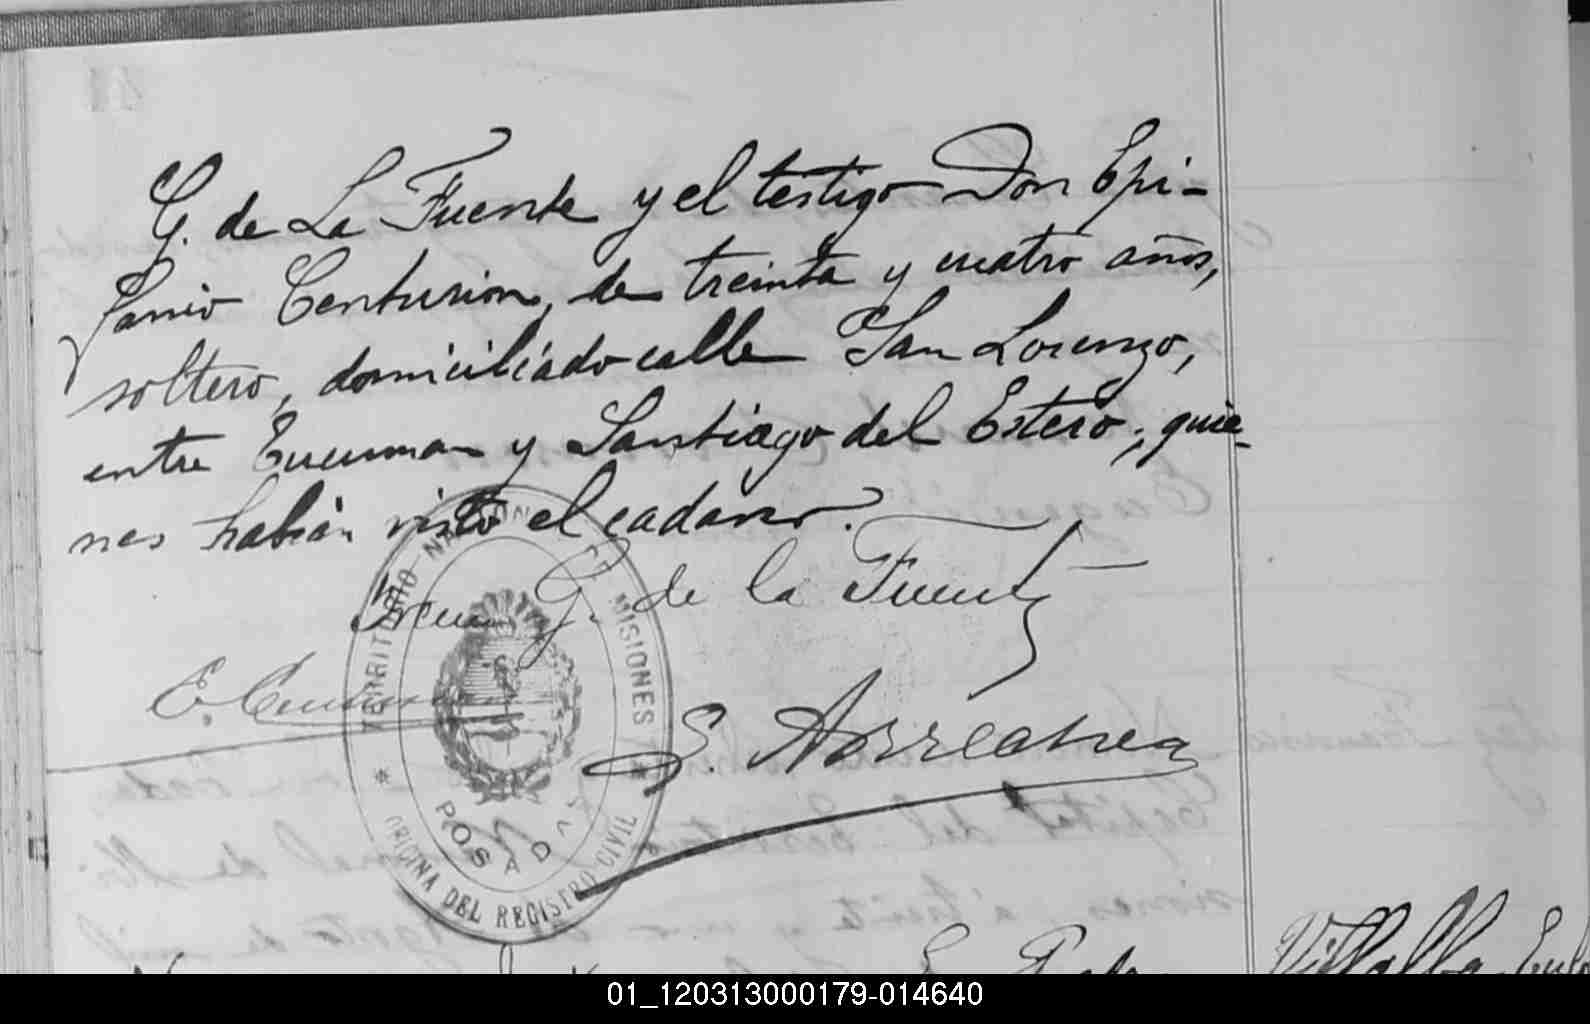 G. de La Fuente y el testigo Don Epi-
fanio Centurion, de treinta y cuatro años,
soltero, domiciliado calle San Lorenzo,
entre Tucuman y Santiago del Estero; quie-
nes habian visto el cadaver.
G. de la Fuente
E. Centurion
S. Arrechea
TERRITORIO NACIONAL DE MISIONES
POSADAS
OFICINA DEL REGISTRO CIVIL
Villalba
01_120313000179-014640